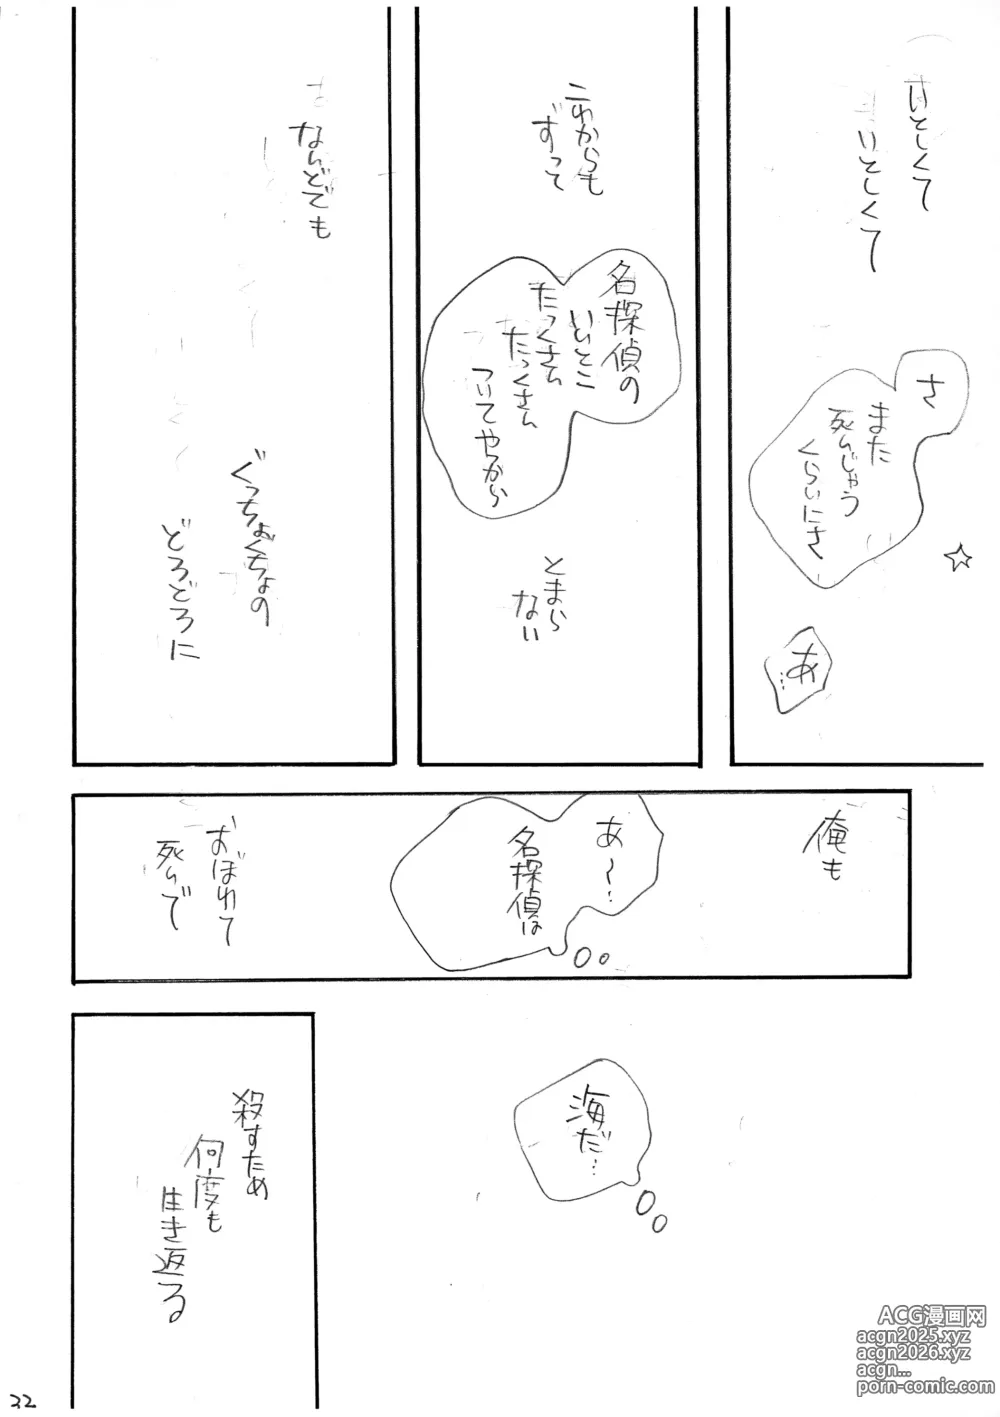 いとしくて
いとしくて
さ
また
死んじゃう
くらいにさ
☆
あ…
これからも
ずって
名探偵の
いいとこ
たっくさん
たっくさん
ついてやっから
とまら
ない
なんどでも
ぐっちょぐちょの
どろどろに
俺も
あ〜…
名探偵は
おぼれて
死んで
海だ…
殺すため
何度も
生き返る
32
ACG漫画网
acgn2025.xyz
acgn2026.xyz
acgn...
porn-comic.com